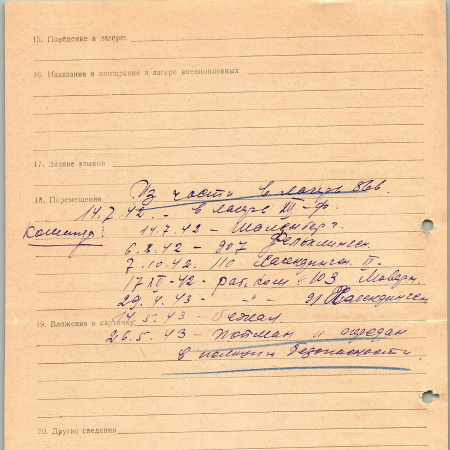 15. Поведение в лагере:
16. Наказания и поощрения в лагере военнопленных
17. Знание языков
18. Перемещения Из части в лагерь
14.7.42. - в лагерь III-Ф.
14.7.42 -
6.8.42 - 907
7.10.42. 110 Хагендинген II-
17 XII-42 - раб. ком 103
29.4.43 - - " - 91 Хагендинген
14.5.43 - бежал
19. Вложения в карточку
26.5.43 - пойман и передан
в полицию безопасности.
20. Другие сведения